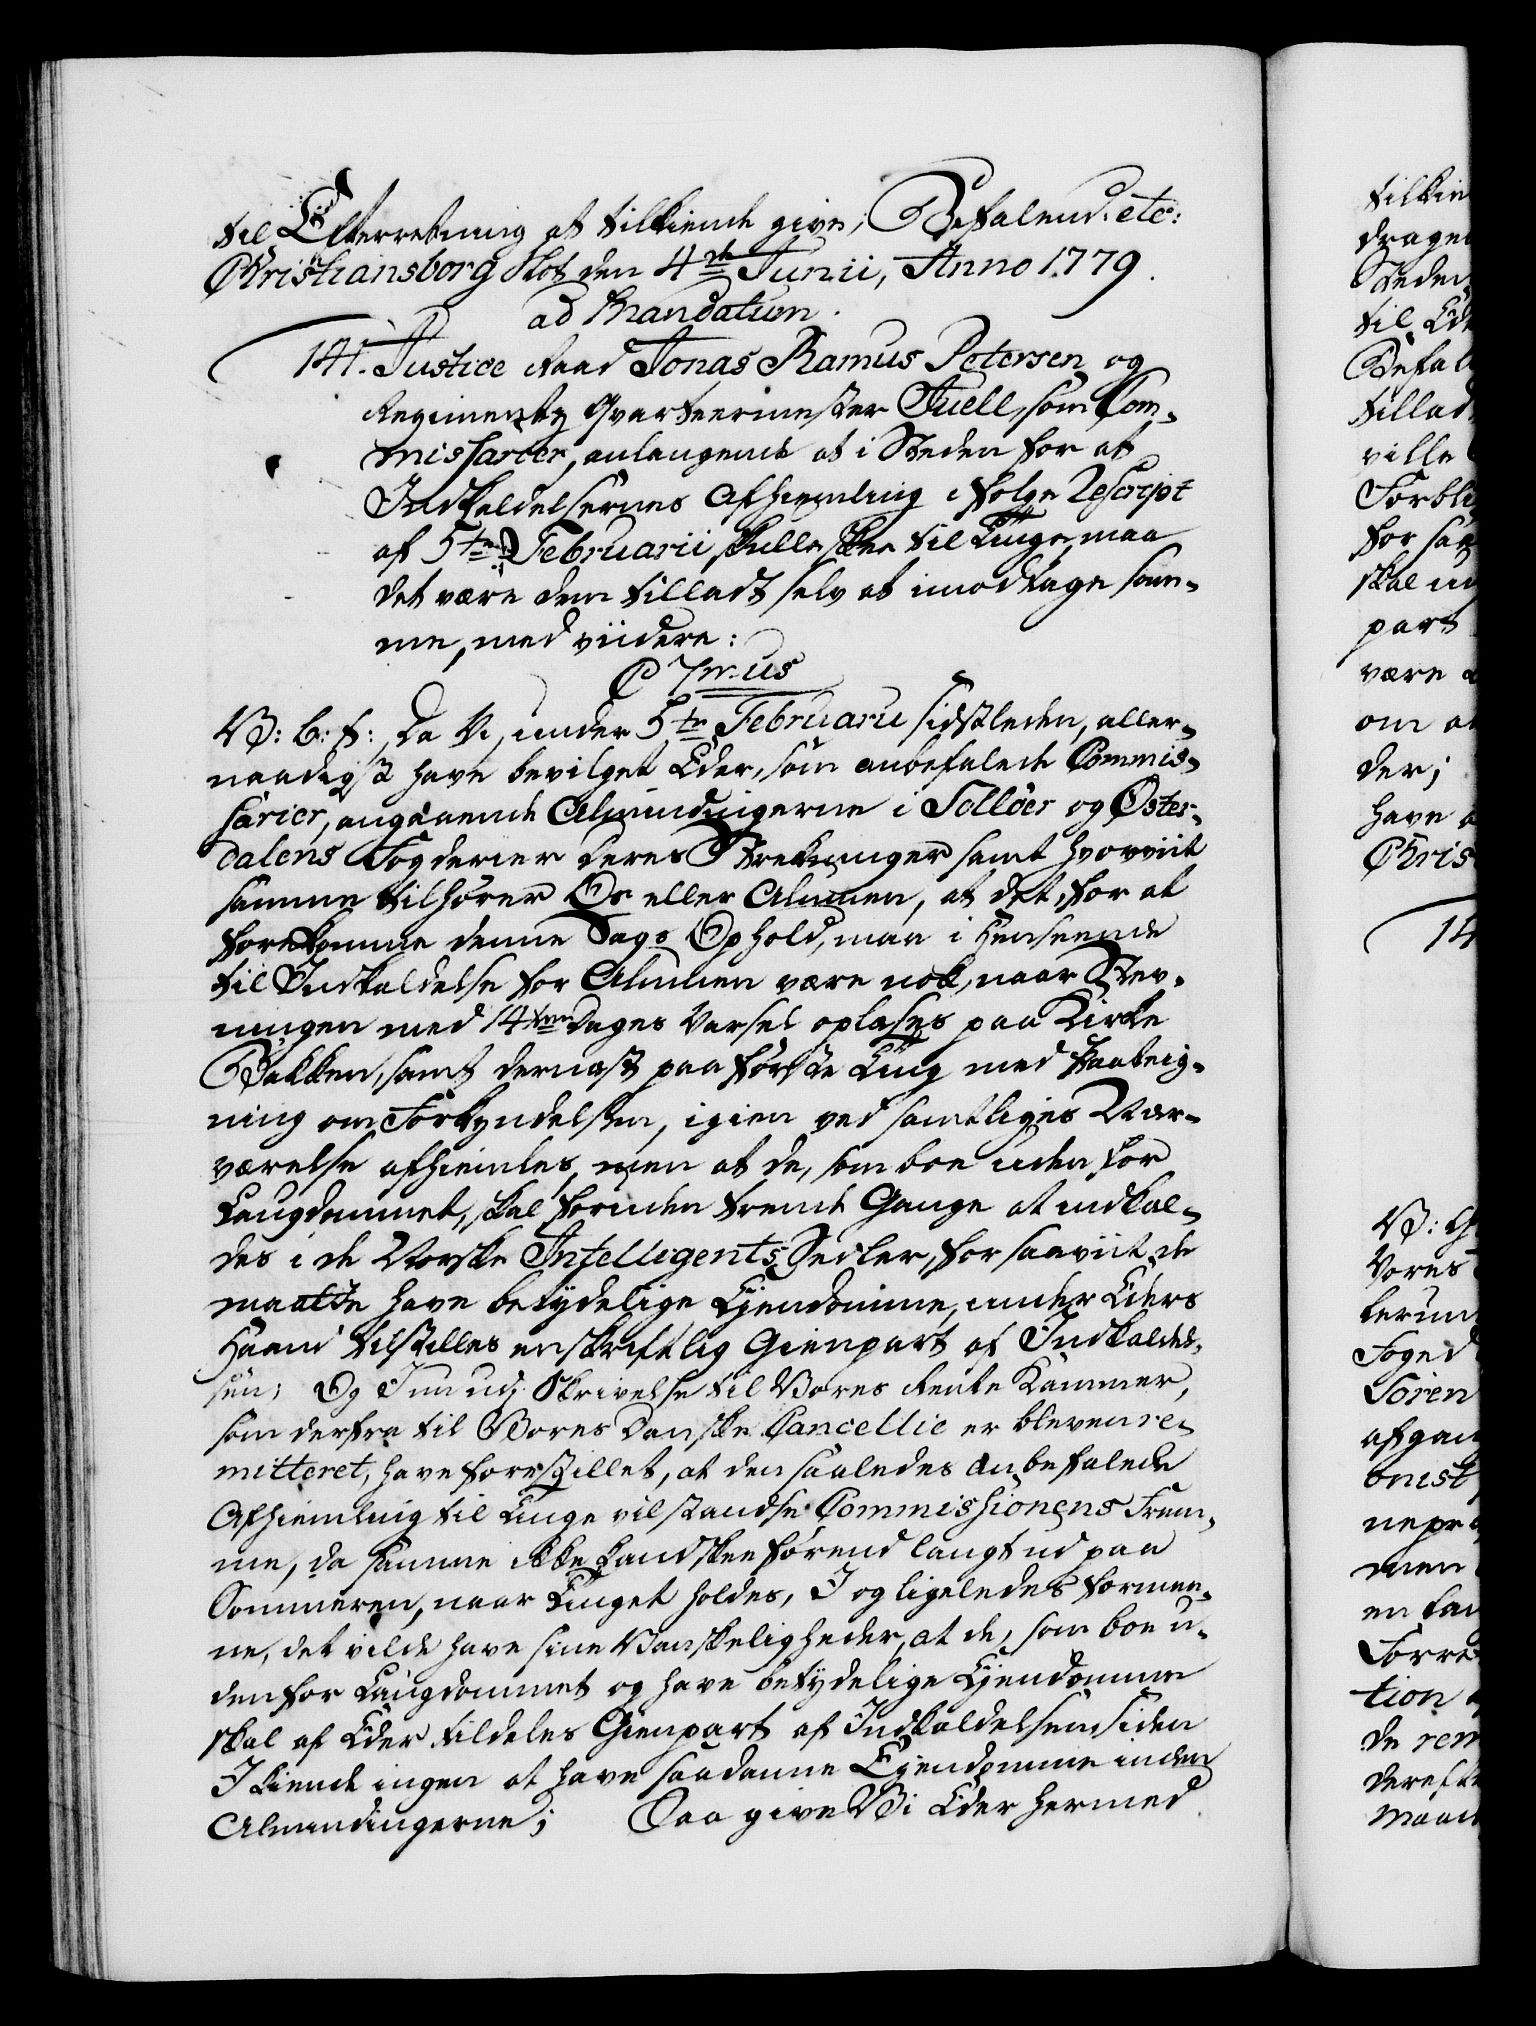 til Efterretning at tilkiende give; Befalend: etc:
Christiansborg Slot den 4de Junii, Anno 1779.
ad Mandatum.
141. Justice Raad Jonas Ramus Petersen og
Regiments Qvarteermester Juell, som Com-
missarier, anlangende at i Steden for at
Indkaldelsernes Afhiemling i følge Rescript
af 5te Februarii skulle skee til Tinge, maa
det være dem tilladt selv at imodtage sam-
me, med viidere:
C 7mus
V: G: T:, Da Vi, under 5te Februarii sidstleden, aller-
naadigst have bevilget Eder, som anbefalede Commis-
sarier, angaaende Almindingerne i Solløer og Øster-
dalens Fogderier deres Strekninger samt hvorviit
samme tilhører Os eller Almuen, at det, for at
forekomme denne Sags Ophold, maa i Henseende
til Indkaldelse for Almuen være nok, naar Stev-
ningen med 14ten Dages Varsel oplæses paa Kirke
Bakken, samt dernæst paa første Ting med Paateig-
ning om Forkyndelsen, igien ved samtliges Nær-
værelse afhiemles, men at de, som boe uden for
Laugdømmet, skal foruden trende Gange at indkal-
des i de Norske Intelligents Sedler, for saaviit de
maatte have betydelige Ejendomme, under Eders
Haand tilstilles en skriftlig Gienpart af Indkaldel-
sen; Og I nu udj Skrivelse til Vores Rente Kammer,
som derfra til Vores Danske Cancellie er bleven re-
mitteret, have forestillet, at den saaledes anbefalede
Afhiemling til Tinge vil standse Commissionens Frem-
me, da samme ikke kand skee førend langt ud paa
Sommeren, naar Tinget holdes, I og ligeledes formee-
ne, det vilde have sine Vanskeligheder, at de, som boe u-
denfor Laugdømmet og have betydelige Ejendomme
skal af Eder tildeles Gienpart af Indkaldelsen siden
I kiende ingen at have saadanne Ejendomme inden
Almindingerne; Saa give Vi Eder hermed